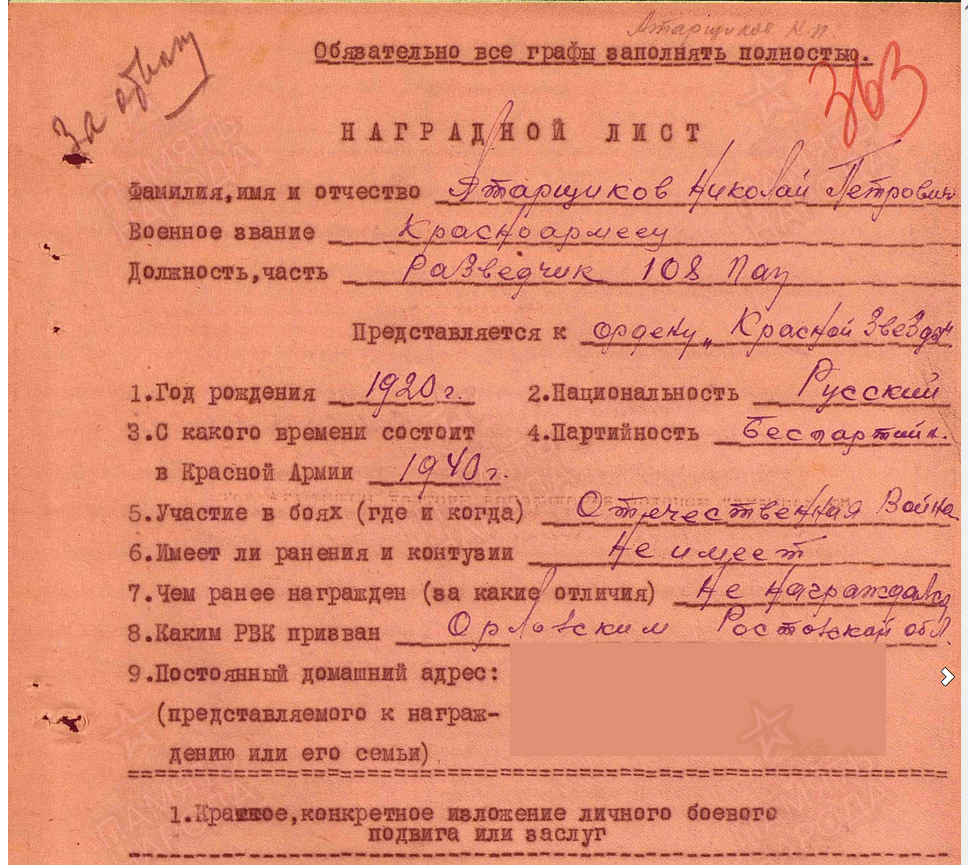 Атарщиков Н.П.
За отвагу
Обязательно все графы заполнять полностью.
363
НАГРАДНОЙ ЛИСТ
Фамилия,имя и отчество Атарщиков Николай Петрович
Военное звание Красноармеец
Должность,часть Разведчик 108 Пап
Представляется к ордену „Красной Звезды"
1.Год рождения 1920 г. 2.Национальность Русский
3.С какого времени состоит 4.Партийность Беспартийн.
в Красной Армии 1940 г.
5.Участие в боях (где и когда) Отечественная Война
6.Имеет ли ранения и контузии Не имеет
7.Чем ранее награжден (за какие отличия) Не награждался
8.Каким РВК призван Орловским Ростовской обл.
9.Постоянный домашний адрес:
(представляемого к награж-
дению или его семьи)
1.Краткое,конкретное изложение личного боевого
подвига или заслуг
ПАМЯТЬ НАРОДА